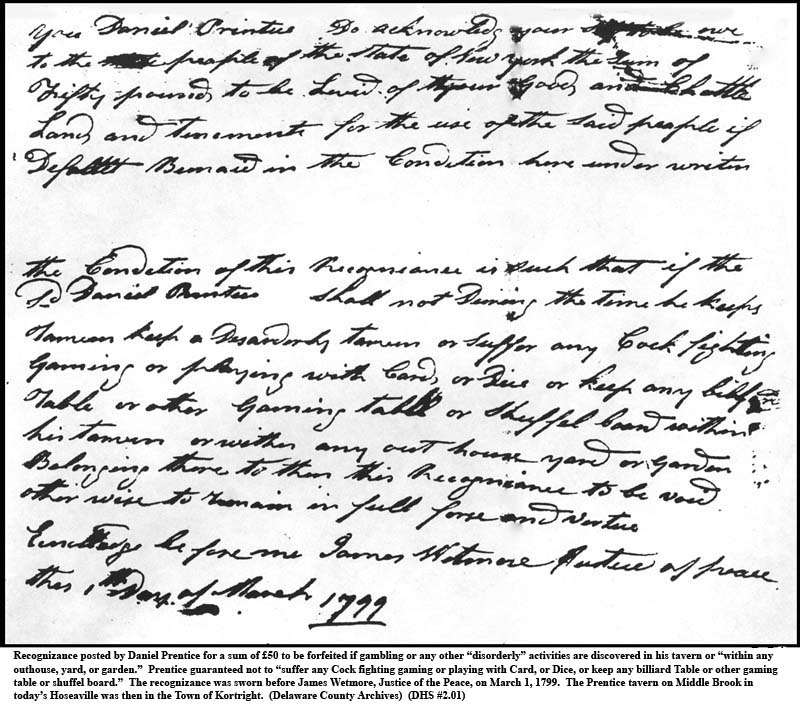 you Daniel Printice Do acknowledg your owe
to the people of the State of New york the Sum of
Fifty pounds to be Levid of your Goods and Chattle
Lands and tenements for the use of the Said people if
Defallt Bemaid in the Condition here under writen
the Condition of this Recogniance is such that if the
Sd Daniel Printice Shall not During the time he keeps
tavern keep a Desarderly tavern or Suffer any Cock fighting
Gaming or playing with Card, or Dice or keep any
Table or other Gaming table or Sheffel board within
his tavern or within any out house yard or Garden
Belonging there to then this Recogniance to be void
other wise to remain in full forse and vertue
before me James Wetmore Justice of peace
this 1th Day of March 1799
Recognizance posted by Daniel Prentice for a sum of £50 to be forfeited if gambling or any other “disorderly” activities are discovered in his tavern or “within any
outhouse, yard, or garden.” Prentice guaranteed not to “suffer any Cock fighting gaming or playing with Card, or Dice, or keep any billiard Table or other gaming
table or shuffel board.” The recognizance was sworn before James Wetmore, Justice of the Peace, on March 1, 1799. The Prentice tavern on Middle Brook in
today’s Hoseaville was then in the Town of Kortright. (Delaware County Archives) (DHS #2.01)